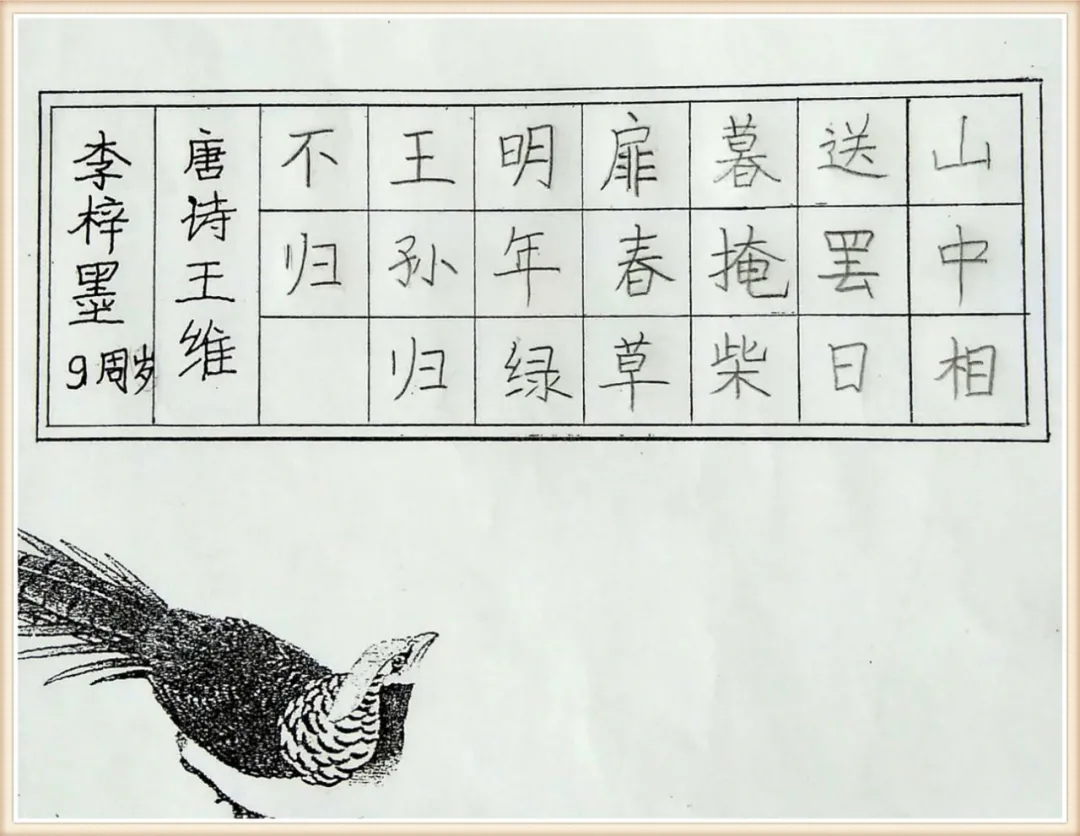 山中相
送罢日
暮掩柴
扉春草
明年绿
王孙归
不归
唐诗王维
李梓墨9周岁